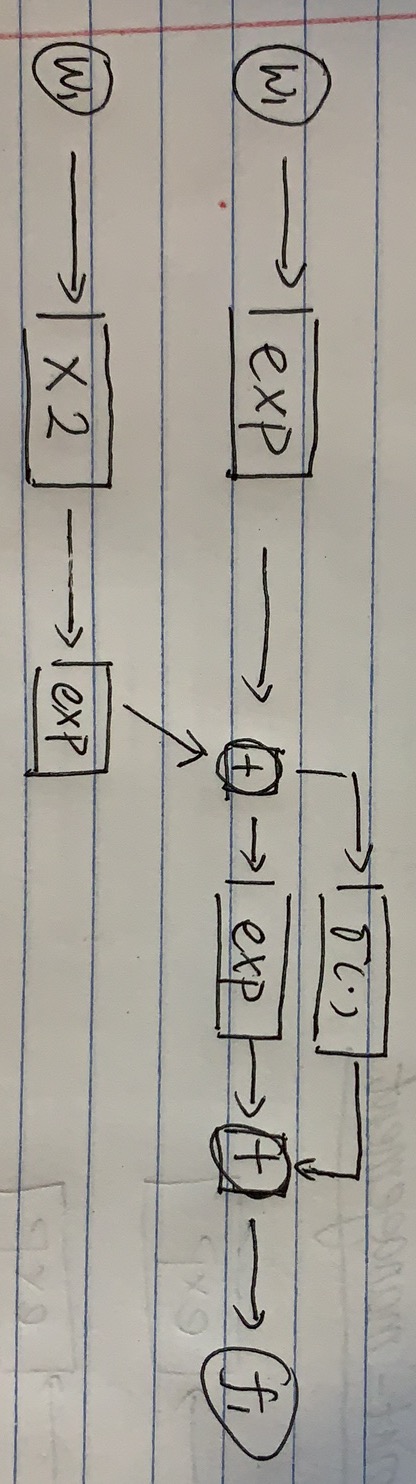 σ(·)
W₁ → exp → + → exp → + → f₁
W₁ → x 2 → exp